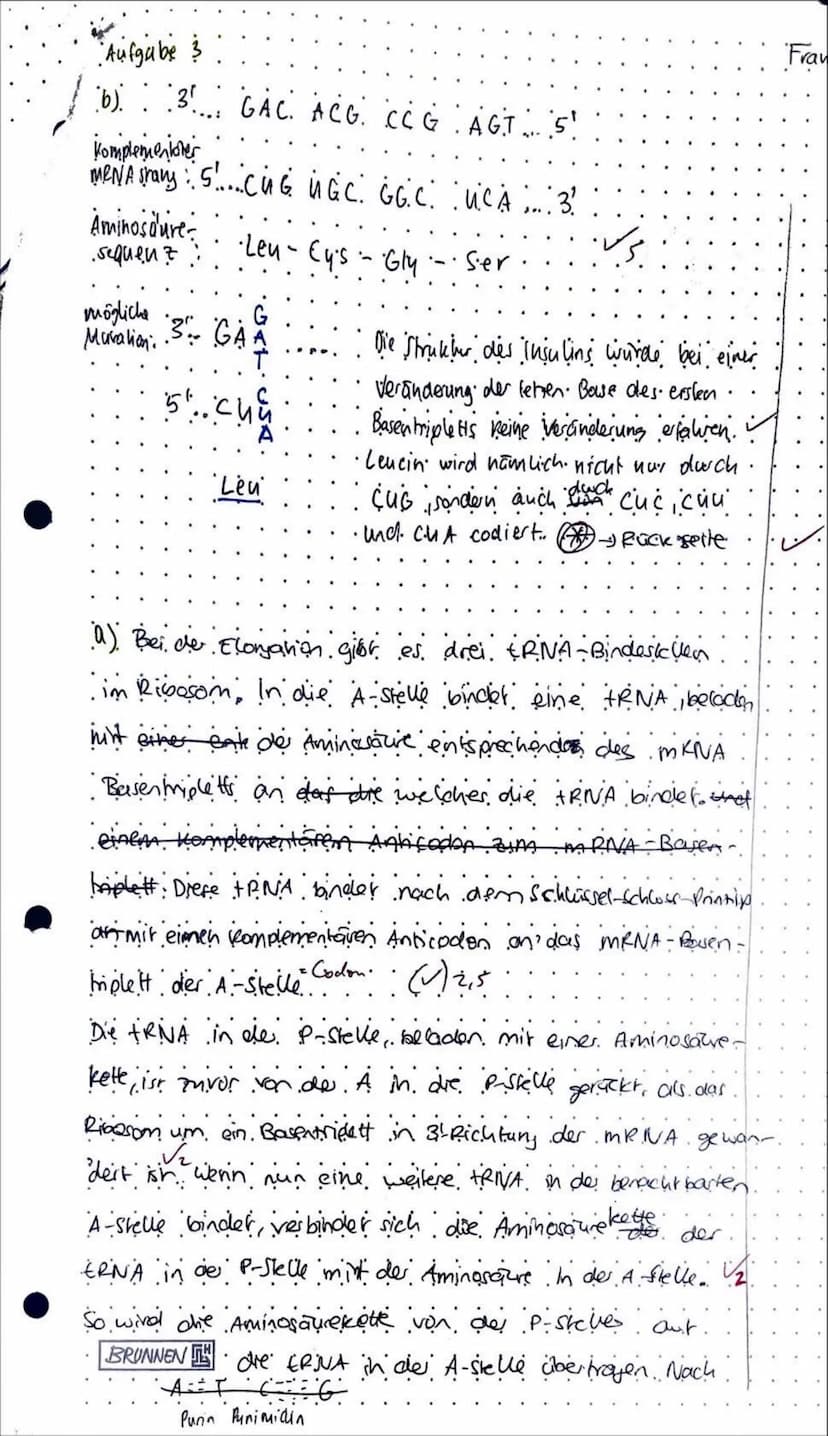 Aufgabe 3
Frau
b) 3'... GAC ACG CCG AGT ... 5'
Komplementärer
mRNA strang: 5'....CUG UGC GGC UCA ... 3'
Aminosäure-
sequenz: Leu - Cys - Gly - Ser ✓5
mögliche
Mutation: 3'.. GA G A T .....
5'.. CU C U A
Leu
Die Struktur des Insulins würde bei einer
Veränderung der letzten Base des ersten
Basentripletts keine Veränderung erfahren. ✓
Leucin wird nämlich nicht nur durch
CUG, sondern auch durch CUC, CUU
und CUA codiert. → Rückseite ✓
a) Bei der Elongation gibt es drei tRNA-Bindestellen
im Ribosom. In die A-Stelle bindet eine tRNA, beladen
mit einer der Aminosäure entsprechend des mRNA
Basentripletts an das die welches die tRNA bindet. und
einem komplementären Anticodon zum mRNA-Basen-
triplett. Diese tRNA bindet nach dem Schlüssel-Schloss-Prinzip
an mit einen komplementären Anticodon an das mRNA-Basen-
triplett der A-Stelle = Codon. (✓) 2,5
Die tRNA in der P-Stelle, beladen mit einer Aminosäure-
kette, ist zuvor von der A in die P-Stelle gerückt, als das
Ribosom um ein Basentriplett in 3'-Richtung der mRNA gewan-
dert ist. ✓2 Wenn nun eine weitere tRNA in der benachbarten
A-Stelle bindet, verbindet sich die Aminosäurekette der
tRNA in der P-Stelle mit der Aminosäure in der A-Stelle. ✓2
So wird die Aminosäurekette von der P-Stelle auf
BRUNNEN die tRNA in der A-Stelle übertragen. Nach
A==T C===G
Purin Pyrimidin